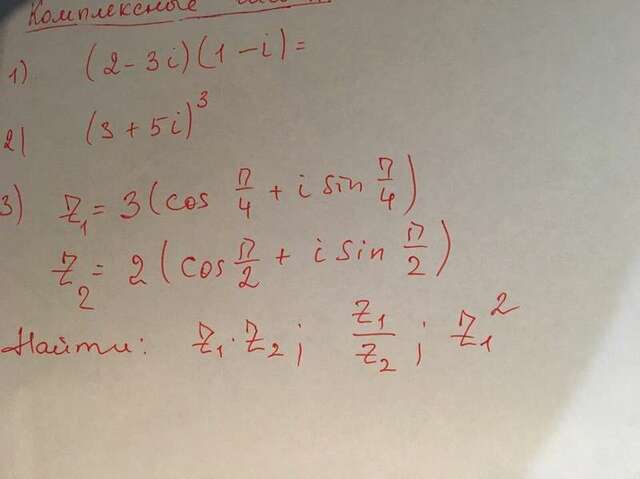 Комплексные
1) (2-3i)(1-i)=
2) (3+5i)³
3) z₁=3(cos π/4 + i sin π/4)
z₂=2(cos π/2 + i sin π/2)
Найти: z₁·z₂; z₁/z₂; z₁²